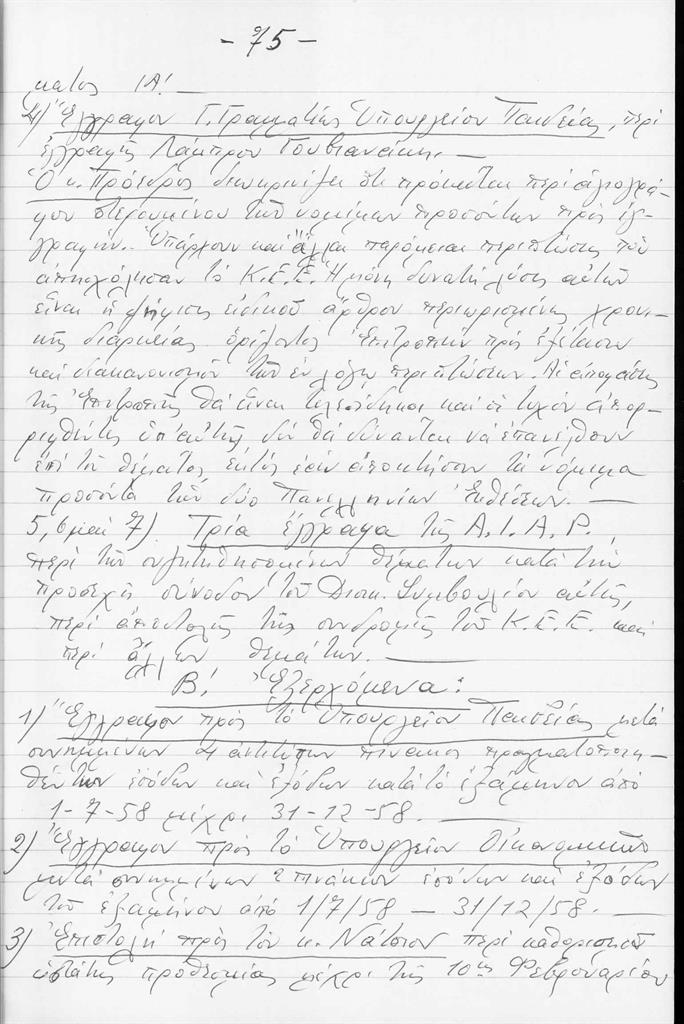 - 75 -
ματος ΙΑ! —
4) Ἔγγραφον Γ. Γραμματέως Ὑπουργείου Παιδείας, περὶ
ἐγγραφῆς Λάμπρου —
Ὁ κ. Πρόεδρος διευκρινίζει ὅτι πρόκειται περὶ ἁγιογρά-
φου στερουμένου τῶν νομίμων προσόντων πρὸς ἐγ-
γραφήν. Ὑπάρχουν καὶ ἄλλαι παρόμοιαι περιπτώσεις ποὺ
ἀπησχόλησαν τὸ Κ.Ε.Ε. Ἡ μόνη δυνατὴ λύσις αὐτῶν
εἶναι ἡ ψήφισις εἰδικοῦ ἄρθρου περιωρισμένης χρονι-
κῆς διαρκείας ὁρίζοντος Ἐπιτροπὴν πρὸς ἐξέτασιν
καὶ διακανονισμὸν τῶν ἐν λόγῳ περιπτώσεων. Αἱ ἀποφάσεις
τῆς Ἐπιτροπῆς θὰ εἶναι τελεσίδικοι καὶ οἱ τυχὸν ἀπορ-
ριφθέντες ὑπ' αὐτῆς δὲν θὰ δύνανται νὰ ἐπανέλθουν
ἐπὶ τοῦ θέματος, ἐκτὸς ἐὰν ἀποκτήσουν τὰ νόμιμα
προσόντα τῶν δύο Πανελληνίων Ἐκθέσεων. —
5, 6 καὶ 7) Τρία ἔγγραφα τῆς A.I.A.P.,
περὶ τῶν συζητηθησομένων θεμάτων κατὰ τὴν
προσεχῆ σύνοδον τοῦ Διοικ. Συμβουλίου αὐτῆς,
περὶ ἀποστολῆς τῆς συνδρομῆς τοῦ Κ.Ε.Ε. καὶ
περὶ ἄλλων θεμάτων. —
Β! Ἐξερχόμενα:
1) Ἔγγραφον πρὸς τὸ Ὑπουργεῖον Παιδείας μετὰ
συνημμένων 4 ἀντιτύπων πίνακος πραγματοποιη-
θέντων ἐσόδων καὶ ἐξόδων κατὰ τὸ ἑξάμηνον ἀπὸ
1-7-58 μέχρι 31-12-58. —
2) Ἔγγραφον πρὸς τὸ Ὑπουργεῖον Οἰκονομικῶν
μετὰ συνημμένων 2 πινάκων ἐσόδων καὶ ἐξόδων
τοῦ ἑξαμήνου ἀπὸ 1/7/58 — 31/12/58. —
3) Ἐπιστολὴ πρὸς τὸν κ. Νάτσιον περὶ καθορισμοῦ
ὑστάτης προθεσμίας μέχρι τῆς 10ης Φεβρουαρίου